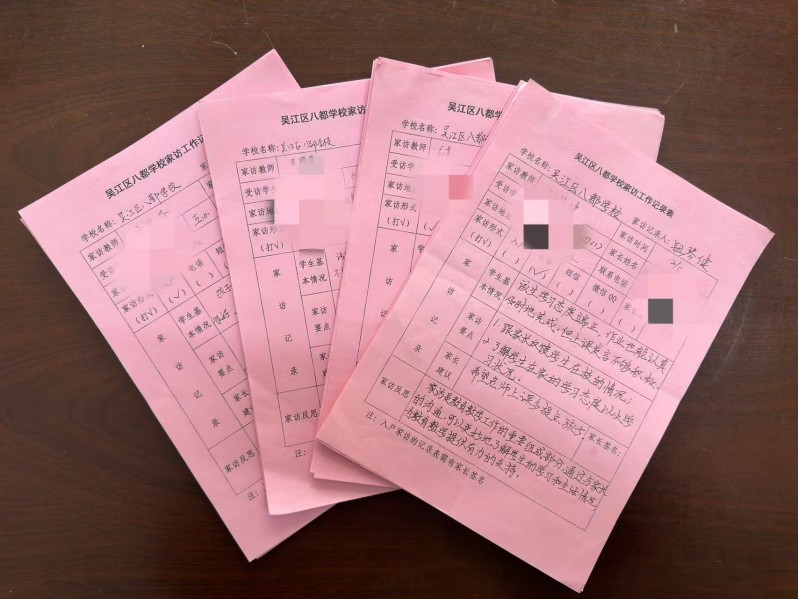 吴江区八都学校家访工作记
学校名称: 吴江区八都学校
家访教师
受访
家访地
家访形式
(打√)
(√)
电话
( )
学生基
本情况
家
访
记
录
家访
要点
家长
建
家访反思
注:
吴江区八都学校家访
学校名称:
家访教师
受访学生
家访地
家访形式
(打√)
家
访
记
录
学生基
本情况
家访
要点
家长
建议
家访反思
注:
吴江区八都学校家访
学校名称: 吴江区八都
家访教师
受访学
家访地
家访形式
(打√)
家
访
记
录
学生基
本情
家访
要点
家长
建议
家访反思
注:
吴江区八都学校家访工作记录表
学校名称: 吴江区八都学校
家访记录人:
家访教师
家访时间
受访学
家长姓名
家访地
联系电话
家访形式
(打√)
入户
( )
(√)
短信
( )
微信QQ
( )
家
访
记
录
学生基
本情况
该生学习态度端正,作业也能认真
及时地完成,但上课发言不够积极
家访
要点
1.跟家长反馈学生在校的情况;
2.了解学生在家的学习态度以及学
习状况.
家长
建议
希望老师上课多提点孩子
家长签名:
家访反思
家访是教育教学工作的重要组成部分,通过与家长
的沟通,可以更好地了解学生的学习和生活情况,
为教育教学提供有力的支持.
注: 入户家访的记录表需有家长签名